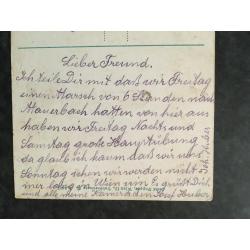 Lieber Freund.
Ich teile Dir mit daß wir Freitag
einen Marsch von 6 Stunden nach
Mauerbach hatten von hier aus
haben wir Freitag Nacht und
Samstag große Hauptübung
da glaub ich kaum daß wir uns
Sonntag sehen wir werden nicht
mer lang in Wien sein Es grüßt Dich
und alle meine Kameraden Josef Huber